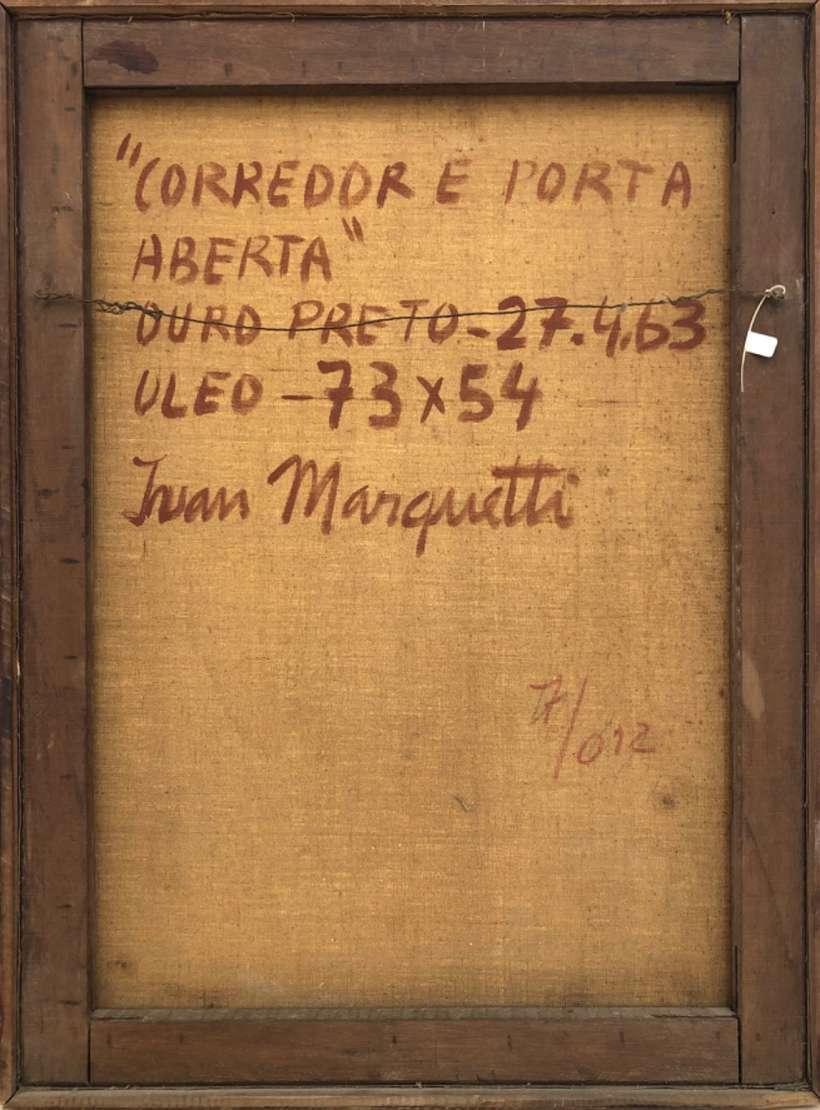 "CORREDOR E PORTA
ABERTA"
OURO PRETO-27.4.63
OLEO-73x54
Ivan Marquetti
7/012